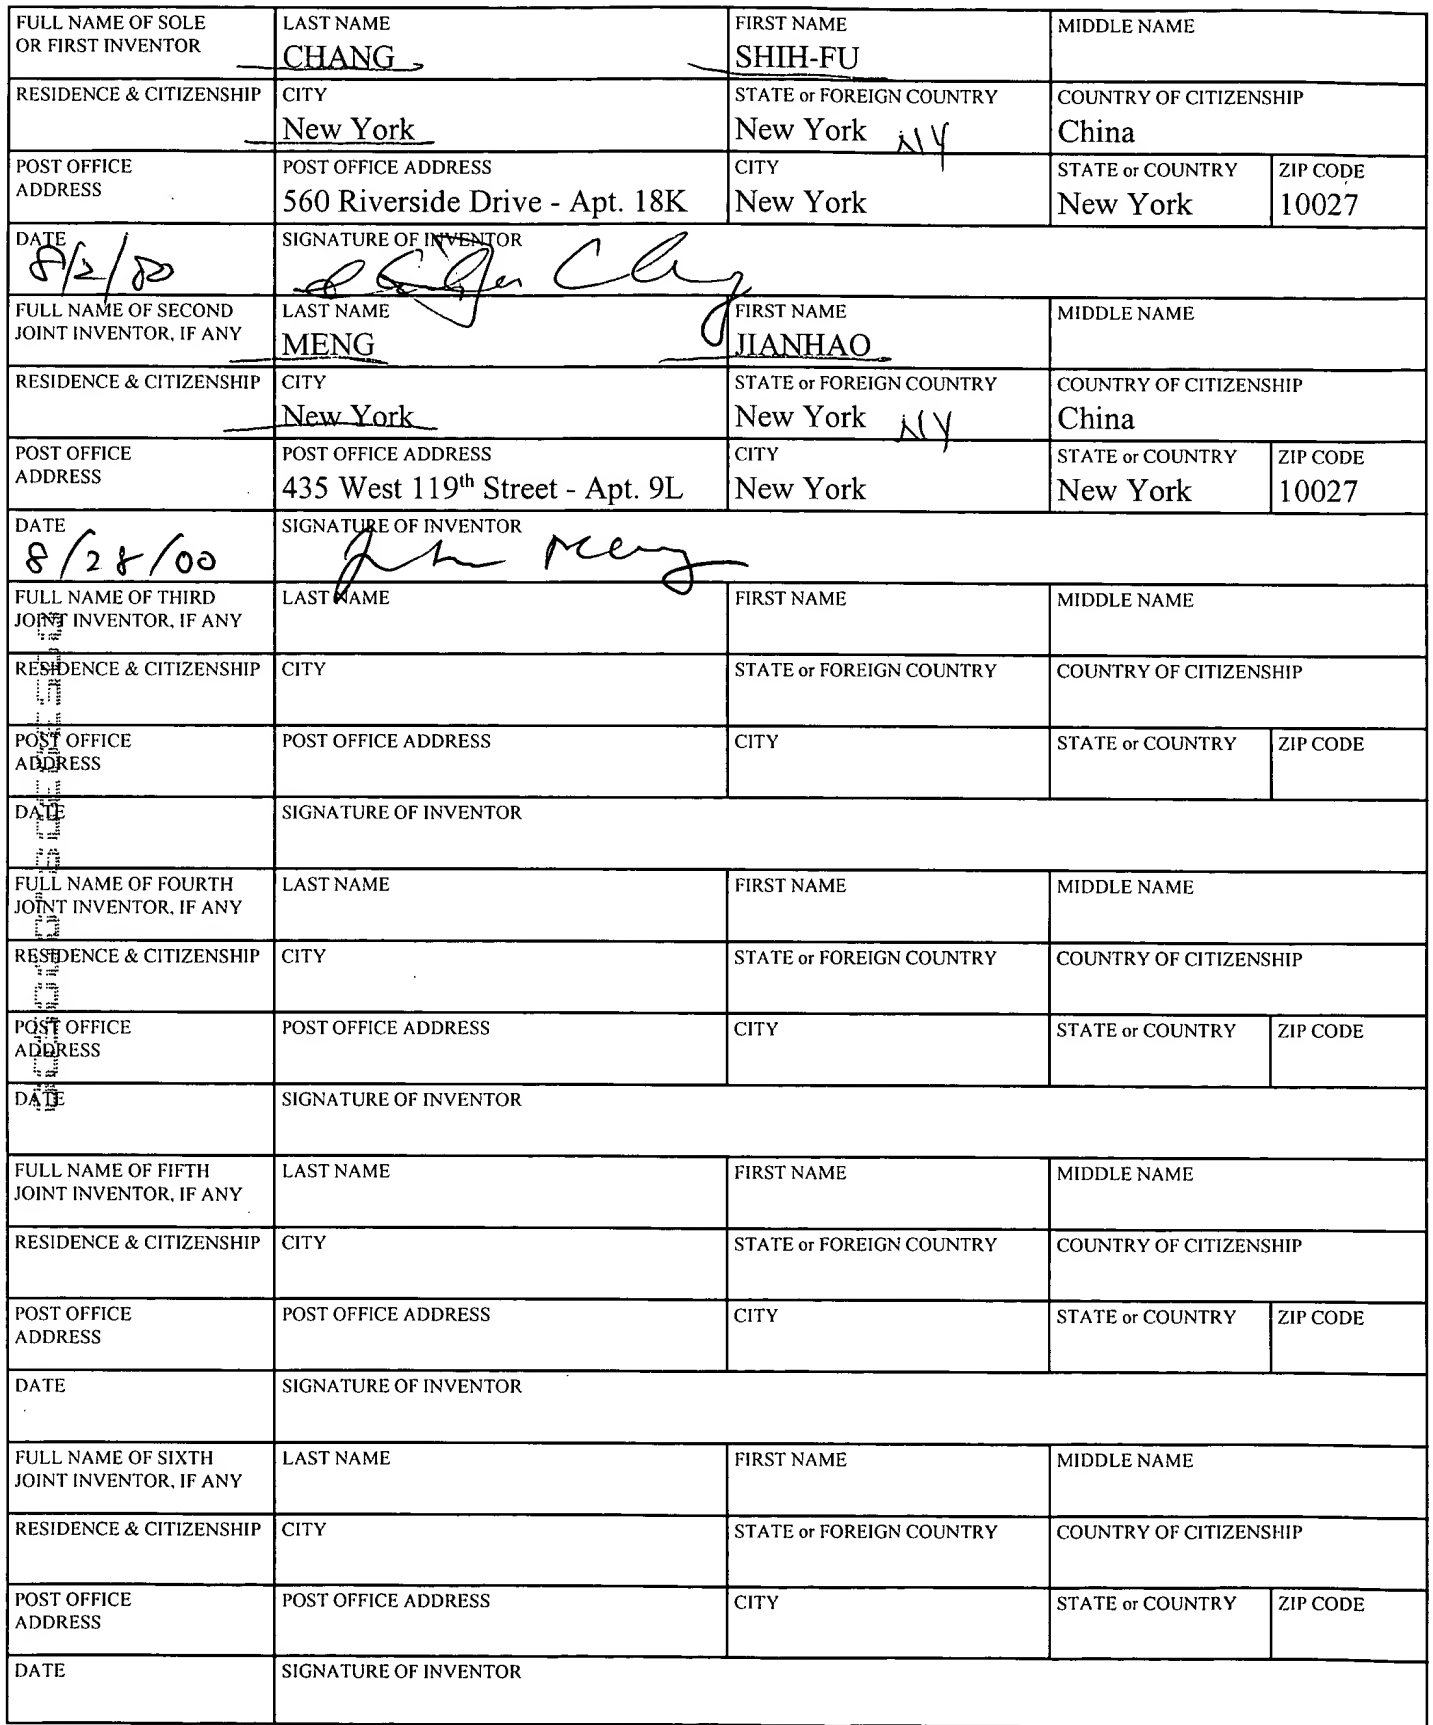 FULL NAME OF SOLE OR FIRST INVENTOR LAST NAME CHANG FIRST NAME SHIH-FU MIDDLE NAME
RESIDENCE & CITIZENSHIP CITY New York STATE or FOREIGN COUNTRY New York NY COUNTRY OF CITIZENSHIP China
POST OFFICE ADDRESS POST OFFICE ADDRESS 560 Riverside Drive - Apt. 18K CITY New York STATE or COUNTRY New York ZIP CODE 10027
DATE 8/2/00 SIGNATURE OF INVENTOR
FULL NAME OF SECOND JOINT INVENTOR, IF ANY LAST NAME MENG FIRST NAME JIANHAO MIDDLE NAME
RESIDENCE & CITIZENSHIP CITY New York STATE or FOREIGN COUNTRY New York NY COUNTRY OF CITIZENSHIP China
POST OFFICE ADDRESS POST OFFICE ADDRESS 435 West 119th Street - Apt. 9L CITY New York STATE or COUNTRY New York ZIP CODE 10027
DATE 8/28/00 SIGNATURE OF INVENTOR Meng
FULL NAME OF THIRD JOINT INVENTOR, IF ANY LAST NAME FIRST NAME MIDDLE NAME
RESIDENCE & CITIZENSHIP CITY STATE or FOREIGN COUNTRY COUNTRY OF CITIZENSHIP
POST OFFICE ADDRESS POST OFFICE ADDRESS CITY STATE or COUNTRY ZIP CODE
DATE SIGNATURE OF INVENTOR
FULL NAME OF FOURTH JOINT INVENTOR, IF ANY LAST NAME FIRST NAME MIDDLE NAME
RESIDENCE & CITIZENSHIP CITY STATE or FOREIGN COUNTRY COUNTRY OF CITIZENSHIP
POST OFFICE ADDRESS POST OFFICE ADDRESS CITY STATE or COUNTRY ZIP CODE
DATE SIGNATURE OF INVENTOR
FULL NAME OF FIFTH JOINT INVENTOR, IF ANY LAST NAME FIRST NAME MIDDLE NAME
RESIDENCE & CITIZENSHIP CITY STATE or FOREIGN COUNTRY COUNTRY OF CITIZENSHIP
POST OFFICE ADDRESS POST OFFICE ADDRESS CITY STATE or COUNTRY ZIP CODE
DATE SIGNATURE OF INVENTOR
FULL NAME OF SIXTH JOINT INVENTOR, IF ANY LAST NAME FIRST NAME MIDDLE NAME
RESIDENCE & CITIZENSHIP CITY STATE or FOREIGN COUNTRY COUNTRY OF CITIZENSHIP
POST OFFICE ADDRESS POST OFFICE ADDRESS CITY STATE or COUNTRY ZIP CODE
DATE SIGNATURE OF INVENTOR